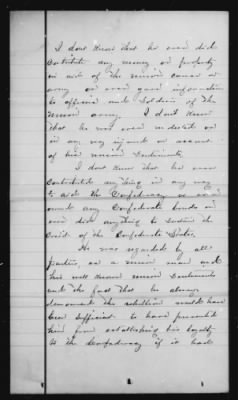 I dont know that he ever did
Contribute any money or property
in aid of the union cause or
army or ever gave information
to officers and Soldiers of the
Union army. I dont know
that he was ever molested or
in any way injured on account
of his union Sentiments.
I dont know that he ever
Contributed anything in any way
to aid the Confederacy
any Confederate bonds or
ever did anything to Sustain the
Credit of the Confederate States.
He was regarded by all
parties, as a union man and
his well known union Sentiments
and the fact that he always
denounced the rebellion would have
been Sufficient to have prevented
him from establishing his loyalty
to the Confederacy if it had